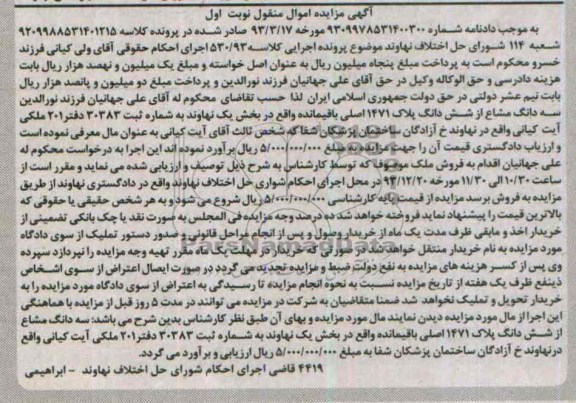 آگهی مزایده اموال منقول نوبت اول
به موجب دادنامه شماره ۹۳۰۹۹۷۸۵۳۱۴۰۰۳۰۰ مورخه ۹۳/۳/۱۷ صادر شده در پرونده کلاسه ۹۲۰۹۹۸۸۵۳۱۴۰۱۲۱۵
شعبه ۱۱۴ شورای حل اختلاف نهاوند موضوع پرونده اجرایی کلاسه ۵۳۰/۹۳ اجرای احکام حقوقی آقای ولی کیانی فرزند
خسرو محکوم است به پرداخت مبلغ پنجاه میلیون ریال به عنوان اصل خواسته و مبلغ یک میلیون و نهصد هزار ریال بابت
هزینه دادرسی و حق الوکاله وکیل در حق آقای علی جهانیان فرزند نورالدین و پرداخت مبلغ دو میلیون و پانصد هزار ریال
بابت نیم عشر دولتی در حق دولت جمهوری اسلامی ایران لذا حسب تقاضای محکوم له آقای علی جهانیان فرزند نورالدین
سه دانگ مشاع از شش دانگ پلاک ۱۴۷۱ اصلی باقیمانده واقع در بخش یک نهاوند به شماره ثبت ۳۰۳۸۳ دفتر ۲۰۱ ملکی
آیت کیانی واقع در نهاوند خ آزادگان ساختمان پزشکان شفا که شخص ثالث آقای آیت کیانی به عنوان مال معرفی نموده است
و ارزیاب دادگستری قیمت آن را جهت مزایده به مبلغ ۵/۰۰۰/۰۰۰/۰۰۰ ریال برآورد نموده اند این اجرا به درخواست محکوم له
علی جهانیان اقدام به فروش ملک موصوف که توسط کارشناس به شرح ذیل توصیف و ارزیابی شده می نماید و مقرر است از
ساعت ۱۰/۳۰ الی ۱۱/۳۰ مورخه ۹۳/۱۲/۲۰ در محل اجرای احکام شواری حل اختلاف نهاوند واقع در دادگستری نهاوند از طریق
مزایده به فروش برسد مزایده از قیمت پایه کارشناسی ۵/۰۰۰/۰۰۰/۰۰۰ ریال شروع می شود و به هر شخص حقیقی یا حقوقی که
بالاترین قیمت را پیشنهاد نماید فروخته خواهد شد ده درصد وجه مزایده فی المجلس به صورت نقد یا چک بانکی تضمینی از
خریدار اخذ و مابقی ظرف مدت یک ماه از خریدار وصول و پس از انجام مراحل قانونی و صدور دستور تملیک از سوی دادگاه
مورد مزایده به نام خریدار منتقل خواهد شد در صورتی که خریدار در مهلت یک ماه مقرر تهیه وجه مزایده را نپردازد سپرده
وی پس از کسر هزینه های مزایده به نفع دولت ضبط و مزایده تجدید می گردد در صورت ایصال اعتراض از سوی اشخاص
ذینفع ظرف یک هفته از تاریخ مزایده نسبت به نحوه انجام مزایده تا رسیدگی به اعتراض از سوی دادگاه مورد مزایده را به
خریدار تحویل و تملیک نخواهد شد ضمنا متقاضیان به شرکت در مزایده می توانند در مدت ۵ روز قبل از مزایده با هماهنگی
این اجرا از مال مورد مزایده دیدن نمایند مال مورد مزایده و بهای آن طبق نظر کارشناس بدین شرح می باشد: سه دانگ مشاع
از شش دانگ پلاک ۱۴۷۱ اصلی باقیمانده واقع در بخش یک نهاوند به شماره ثبت ۳۰۳۸۳ دفتر ۲۰۱ ملکی آیت کیانی واقع
درنهاوند خ آزادگان ساختمان پزشکان شفا به مبلغ ۵/۰۰۰/۰۰۰/۰۰۰ ریال ارزیابی و برآورد می گردد.
۴۴۱۹ قاضی اجرای احکام شورای حل اختلاف نهاوند - ابراهیمی